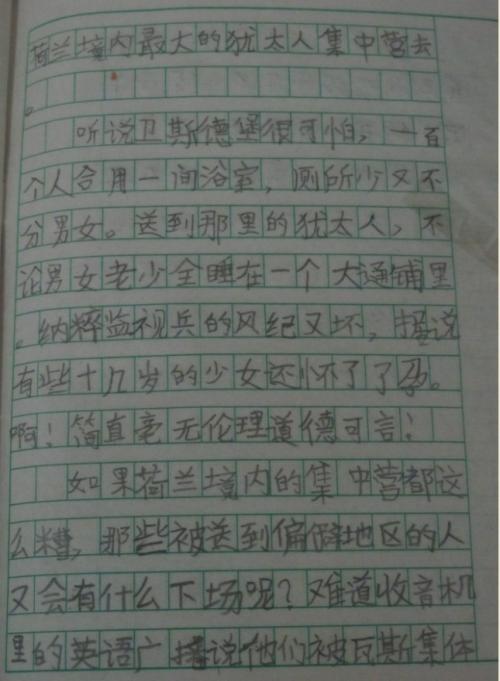 荷兰境内最大的犹太人集中营去
。
听说卫斯德堡很可怕，一百
个人合用一间浴室，厕所少又不
分男女。送到那里的犹太人，不
论男女老少全睡在一个大通铺里
。纳粹监视兵的风纪又坏，据说
有些十几岁的少女还怀了了孕。
啊！简直毫无伦理道德可言！
如果荷兰境内的集中营都这
么糟，那些被送到偏僻地区的人
又会有什么下场呢？难道收音机
里的英语广播说他们被瓦斯集体